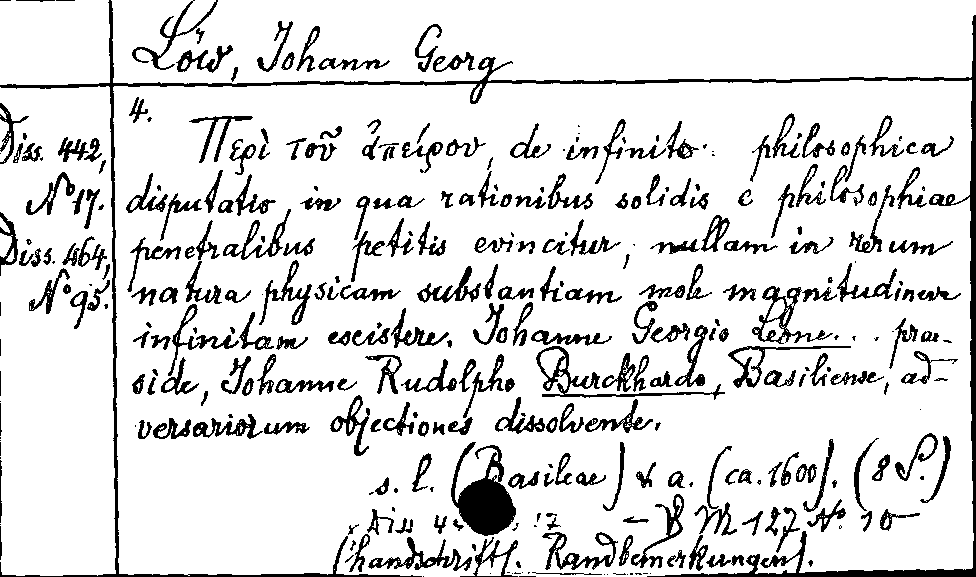 Löw, Johann Georg
4.
Diss. 442, Περὶ τοῦ ἀπείρου, de infinito. philosophica
No 17. disputatio, in qua rationibus solidis e philosophiae
Diss. 464, penetralibus petitis evincitur, nullam in rerum
No 95. natura physicam substantiam mole magnitudineve
infinitam existere. Johanne Georgio Leone... prae-
side, Johanne Rudolpho Burckhardo, Basiliense, ad-
versariorum objectiones dissolvente.
s. l. (Basileae) & a. (ca. 1600). (8 S.)
Diss 17 — M 127 No. 10
(handschriftl. Randbemerkungen).